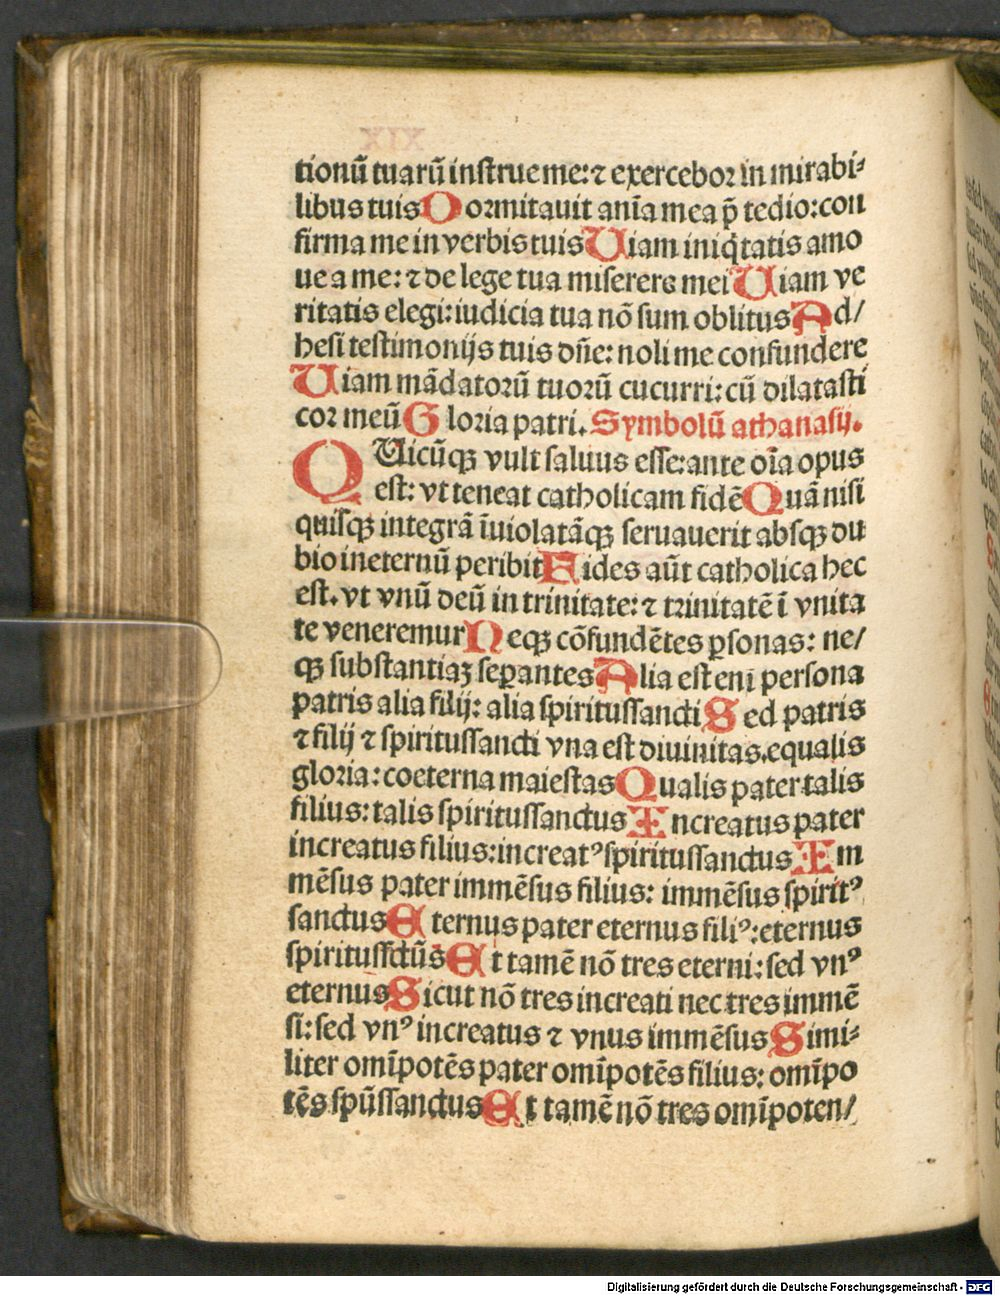 tionū tuarū instrue me: ⁊ exercebor in mirabi⸗
libus tuis Dormitauit anīa mea p̄ tedio: con
firma me in verbis tuis Uiam iniq̄tatis amo
ue a me: ⁊ de lege tua miserere mei Uiam ve
ritatis elegi: iudicia tua nō sum oblitus Ad/
hesi testimonijs tuis dn̄e: noli me confundere
Uiam mādatorū tuorū cucurri: cū dilatasti
cor meū Gloria patri. Symbolū athanasij.
QUicūqꝫ vult saluus esse: ante oīa opus
est: vt teneat catholicam fidē Quā nisi
quisqꝫ integrā īuiolatāqꝫ seruauerit absqꝫ du
bio ineternū peribit Fides aūt catholica hec
est. vt vnū deū in trinitate: ⁊ trinitatē ī vnita
te veneremur Neqꝫ cōfundētes ꝑsonas: ne/
qꝫ substantiaꝫ seꝑantes Alia est enī persona
patris alia filij: alia spiritussancti Sed patris
⁊ filij ⁊ spiritussancti vna est diuinitas. equalis
gloria: coeterna maiestas Qualis pater talis
filius: talis spiritussanctus Increatus pater
increatus filius: increatꝰ spiritussanctus Im
mēsus pater immēsus filius: immēsus spiritꝰ
sanctus Eternus pater eternus filiꝰ: eternus
spiritussctūs Et tamē nō tres eterni: sed vnꝰ
eternus Sicut nō tres increati nec tres immē
si: sed vnꝰ increatus ⁊ vnus immēsus Simi⸗
liter omīpotēs pater omīpotēs filius: omīpo
tēs spūssanctus Et tamē nō tres omīpoten/
Digitalisierung gefördert durch die Deutsche Forschungsgemeinschaft - DFG